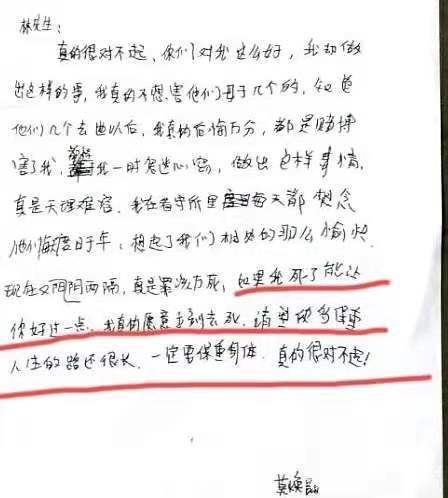 林先生：
真的很对不起，你们对我这么好，我却做
出这样的事，我真的不想害他们母子几个的，知道
他们几个去世以后，我真的后悔万分，都是赌博
害了我，我一时鬼迷心窍，做出这样事情，
真是天理难容，我在看守所里每天都想念
他们，度日于年，想起了我们相处的那么愉快，
现在又阴阳两隔，真是罪该万死，如果我死了能让
你好过一点，我真的愿意立刻去死，请望您多保重
人生的路还很长，一定要保重身体，真的很对不起！
莫焕晶